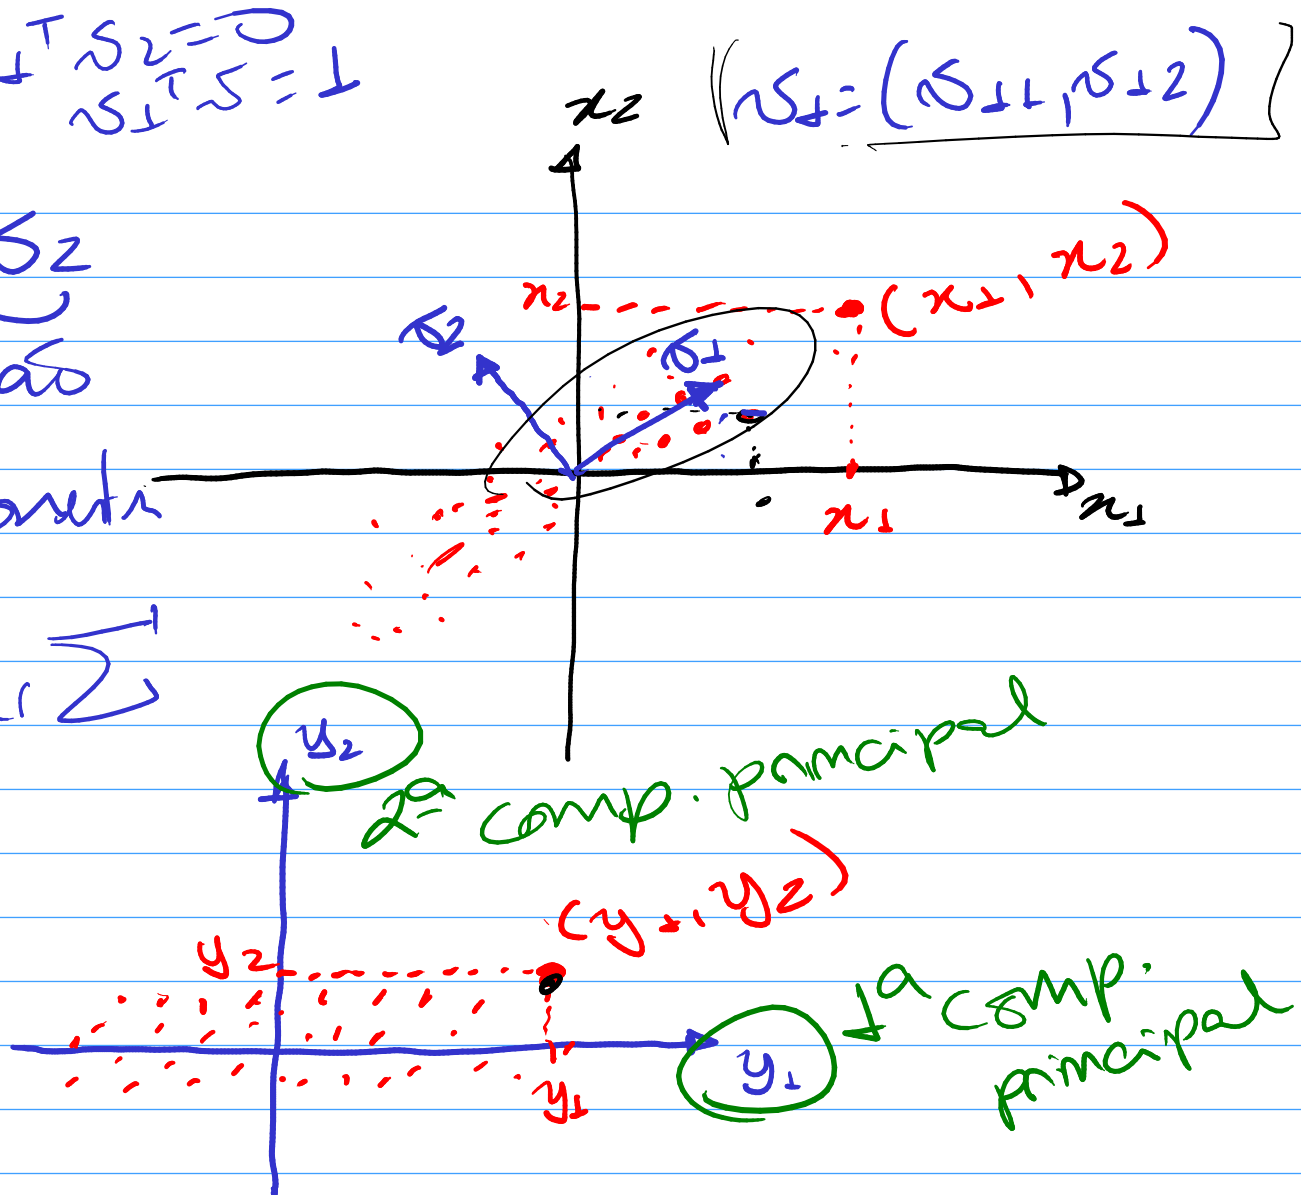 ₁ᵀ v₂ = 0
v₁ᵀ v = 1
(v₁ = (v₁₁, v₁₂)
x₂
v₂
x₂
(x₁, x₂)
v₂
v₁
x₁
x₁
Σ
y₂
2ª comp. principal
(y₁, y₂)
y₂
1ª comp. principal
y₁
y₁